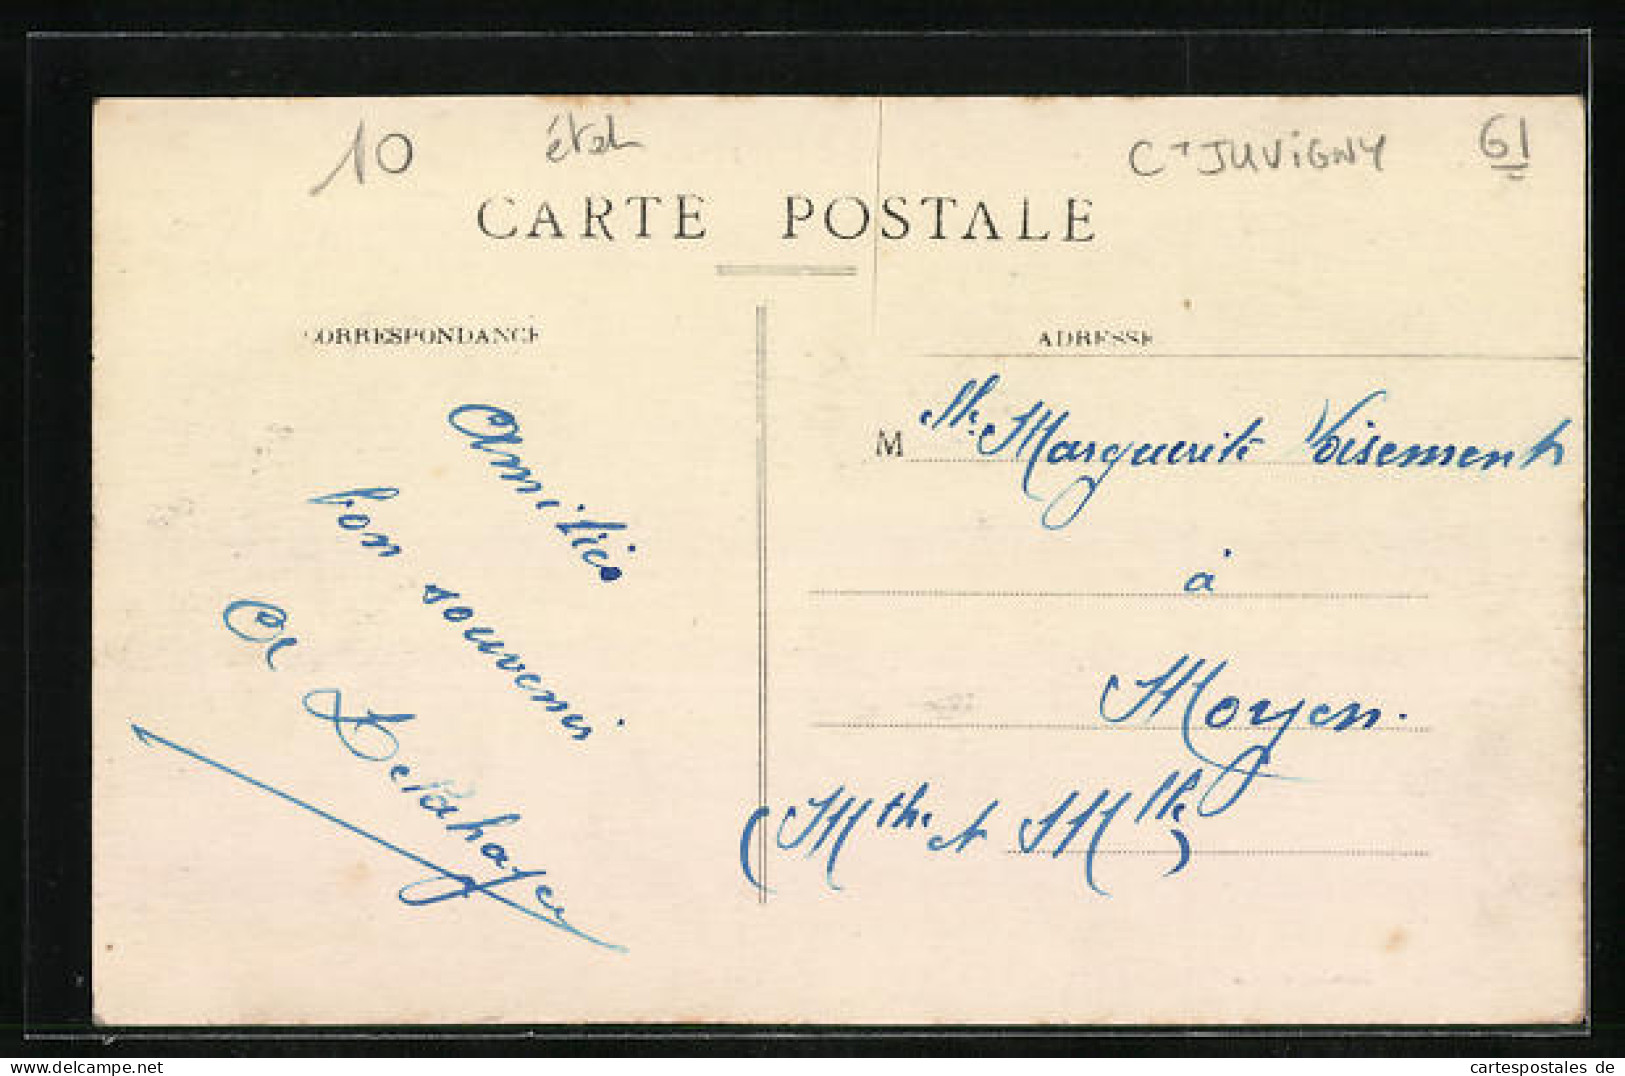 10 étal Ct JUVIGNY 61
CARTE POSTALE
CORRESPONDANCE
ADRESSE
Amitiés
bon souvenir
A Delahaye
M Mlle Marguerite Voisement
à
Moyen.
(Mthe et Mlle)
www.cartespostales.de